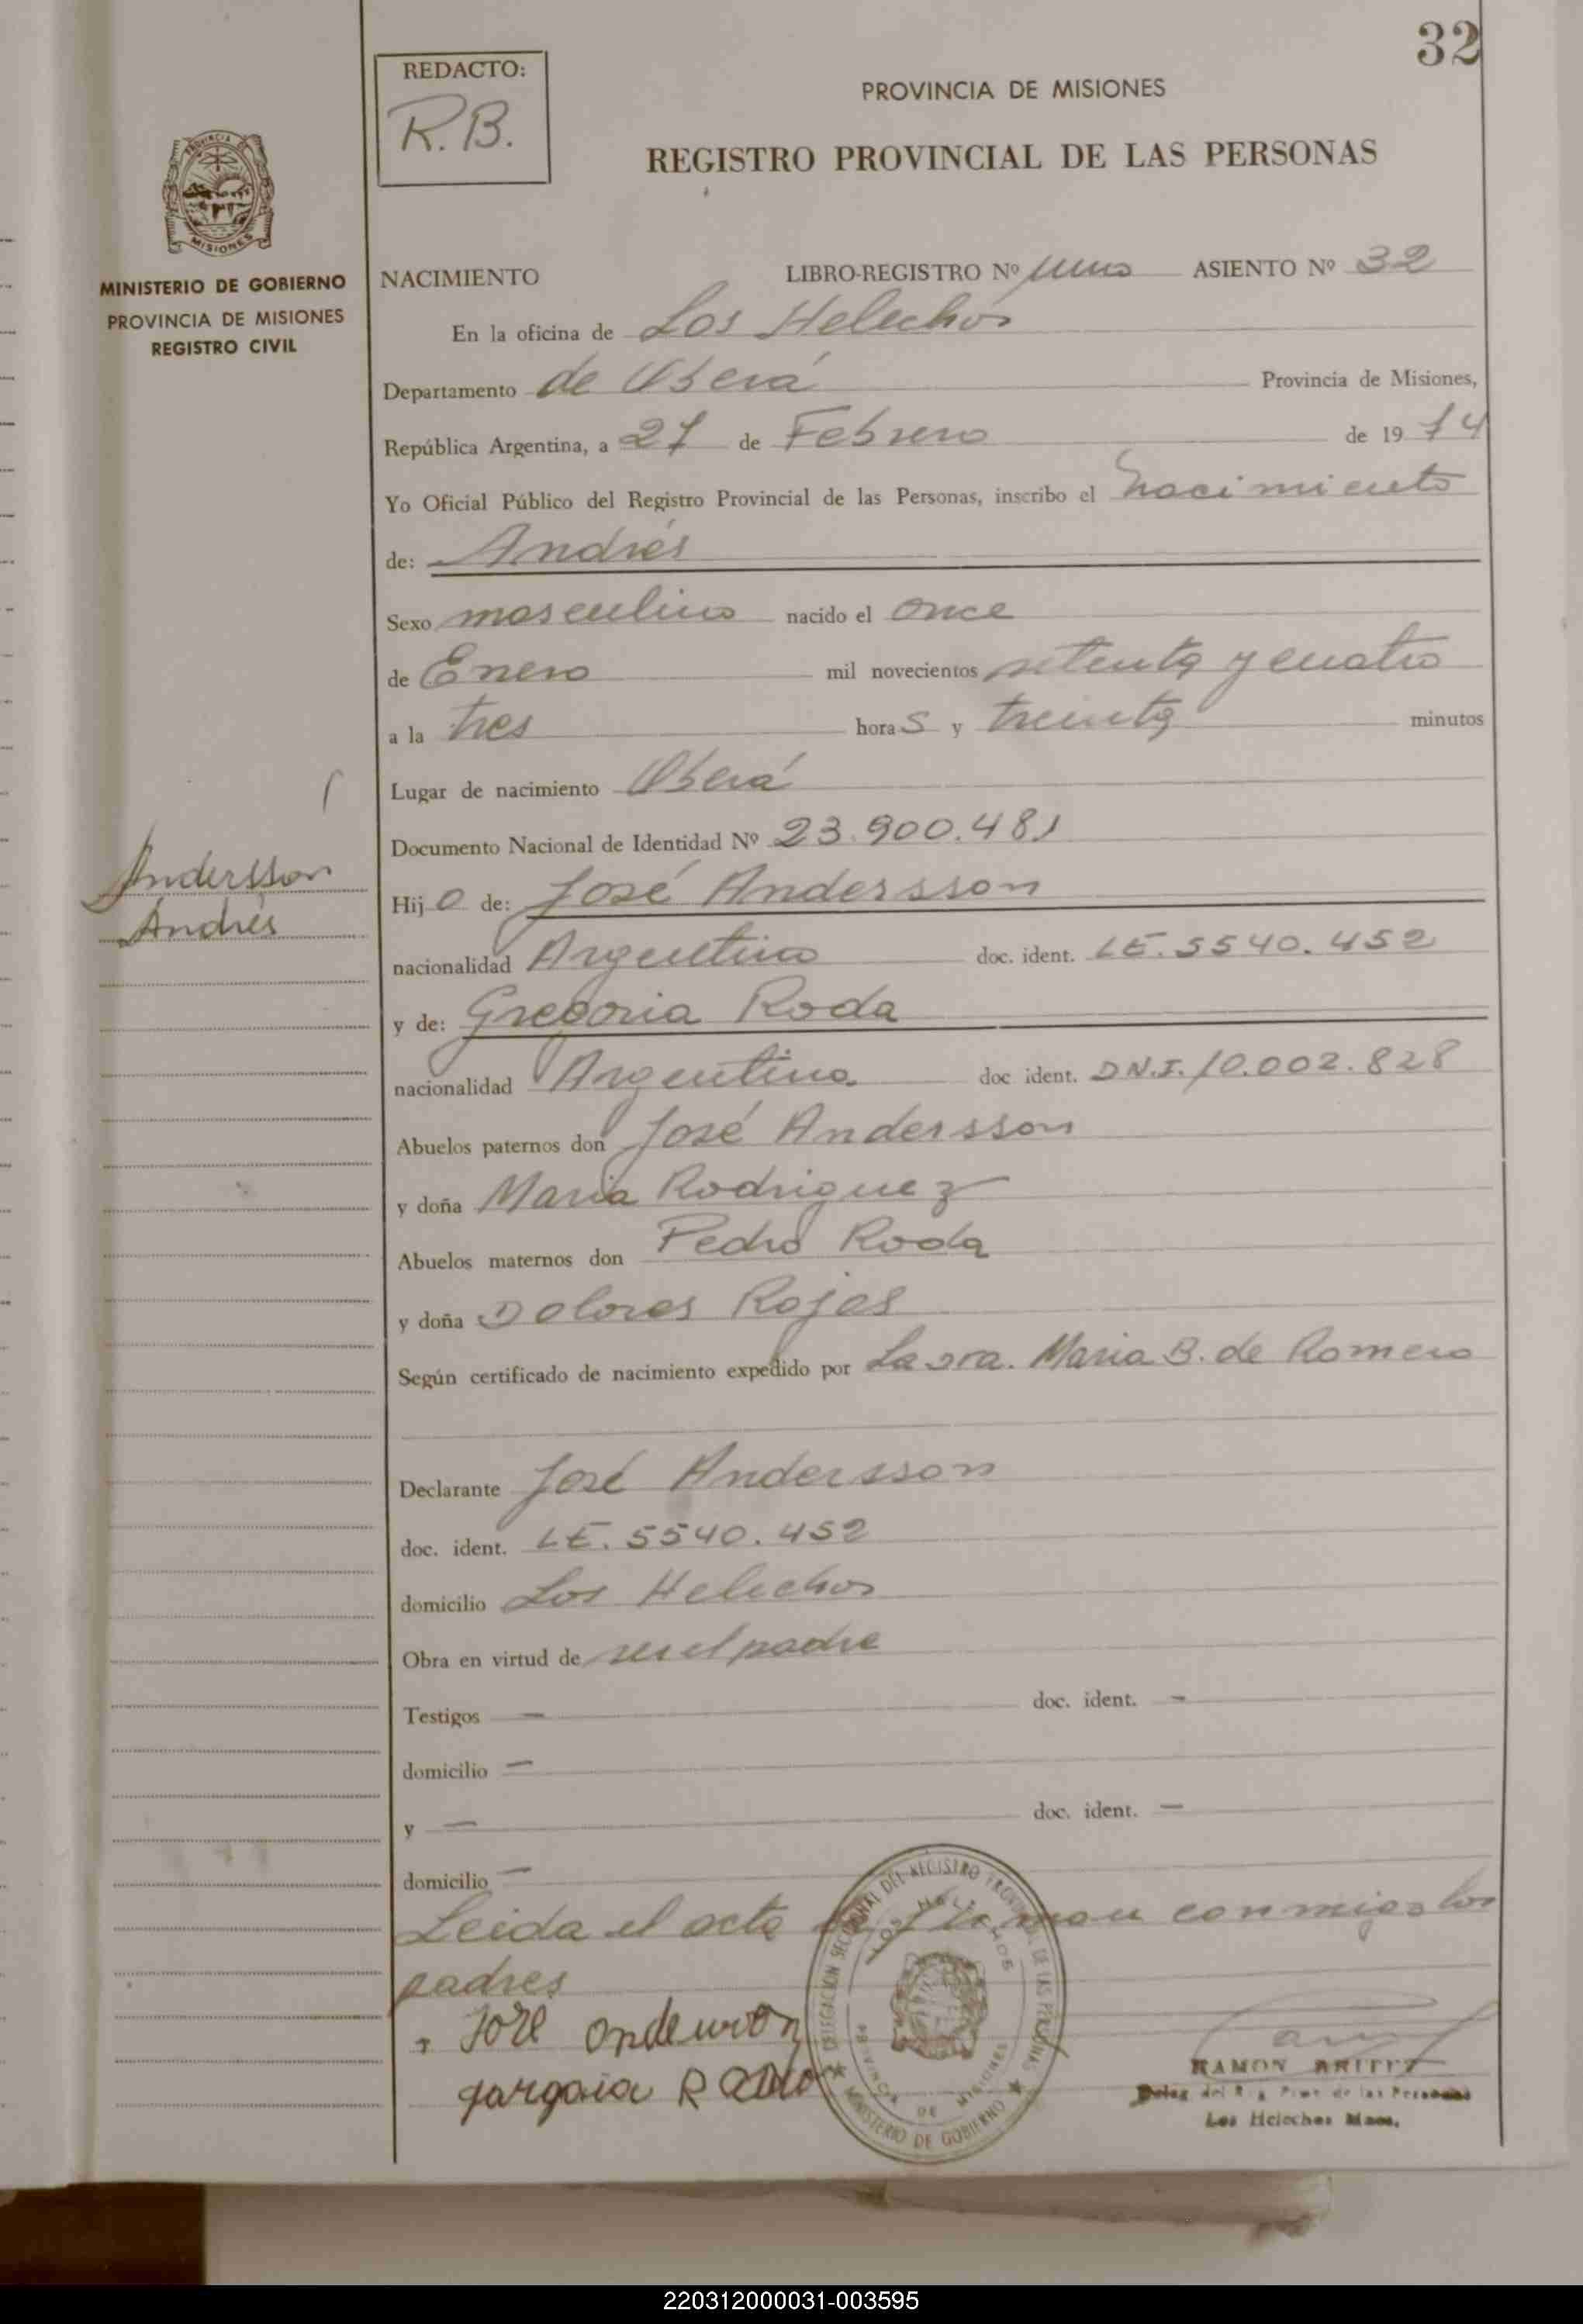 32
REDACTO:
R.B.
PROVINCIA DE MISIONES
REGISTRO PROVINCIAL DE LAS PERSONAS
PROVINCIA DE
MISIONES
MINISTERIO DE GOBIERNO
PROVINCIA DE MISIONES
REGISTRO CIVIL
NACIMIENTO LIBRO-REGISTRO Nº uno ASIENTO Nº 32
En la oficina de Los Helechos
Departamento de Oberá Provincia de Misiones,
República Argentina, a 27 de Febrero de 19 74
Yo Oficial Público del Registro Provincial de las Personas, inscribo el nacimiento
de: Andrés
Sexo masculino nacido el once
de Enero mil novecientos setenta y cuatro
a la tres horas y treinta minutos
Lugar de nacimiento Oberá
Documento Nacional de Identidad Nº 23.900.481
Andersson
Andrés
Hijo de: José Andersson
nacionalidad Argentino doc. ident. LE. 5540.452
y de: Gregoria Roda
nacionalidad Argentina doc ident. D.N.I. 10.002.828
Abuelos paternos don José Andersson
y doña Maria Rodriguez
Abuelos maternos don Pedro Roda
y doña Dolores Rojas
Según certificado de nacimiento expedido por La sra. Maria B. de Romero
Declarante José Andersson
doc. ident. LE. 5540.452
domicilio Los Helechos
Obra en virtud de ser el padre
Testigos — doc. ident. —
domicilio —
y — doc. ident. —
domicilio —
Leida el acta la firman conmigo los
padres
DELEGACION SECCIONAL DEL REGISTRO PROVINCIAL DE LAS PERSONAS
LOS HELECHOS
PROVINCIA DE MISIONES
★ MINISTERIO DE GOBIERNO ★
RAMON BRITEZ
de las Personas
Los Helechos Mnes.
220312000031-003595